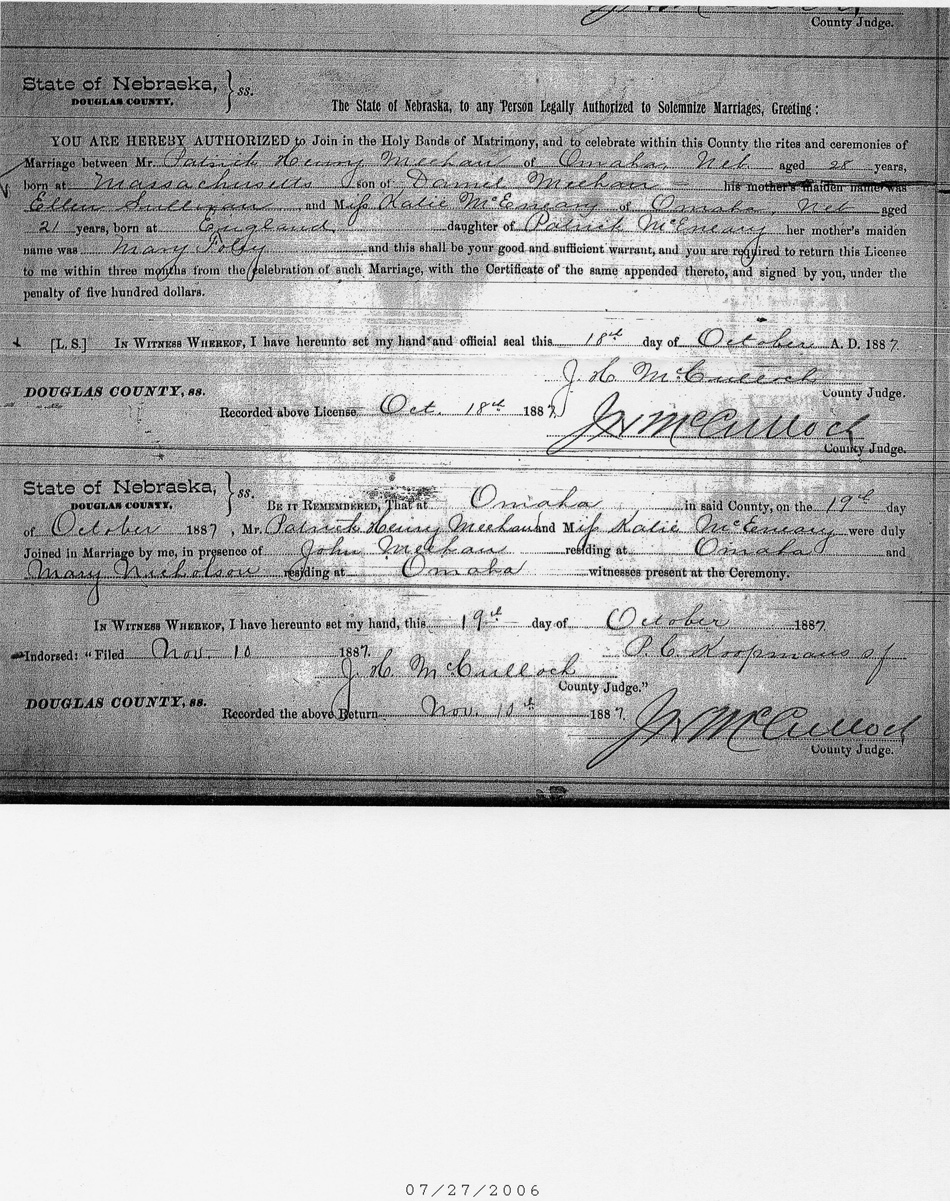 County Judge.
State of Nebraska,
DOUGLAS COUNTY, } ss.
The State of Nebraska, to any Person Legally Authorized to Solemnize Marriages, Greeting:
YOU ARE HEREBY AUTHORIZED to Join in the Holy Bands of Matrimony, and to celebrate within this County the rites and ceremonies of
Marriage between Mr. Patrick Henry Meehan of Omaha, Neb aged 28 years,
born at Massachusetts son of Daniel Meehan his mother's maiden name was
Ellen Sullivan and Miss Katie McEneany of Omaha, Neb aged
21 years, born at England, daughter of Patrick McEneany her mother's maiden
name was Mary Foley and this shall be your good and sufficient warrant, and you are required to return this License
to me within three months from the celebration of such Marriage, with the Certificate of the same appended thereto, and signed by you, under the
penalty of five hundred dollars.
[L. S.] IN WITNESS WHEREOF, I have hereunto set my hand and official seal this 18th day of October A. D. 1887.
J. H. McCulloch
DOUGLAS COUNTY, ss. County Judge.
Recorded above License Oct. 18th 1887.
J H McCulloch
County Judge.
State of Nebraska,
DOUGLAS COUNTY. } ss.
BE IT REMEMBERED, That at Omaha in said County, on the 19th day
of October 1887, Mr. Patrick Henry Meehan and Miss Katie McEneany were duly
Joined in Marriage by me, in presence of John Meehan residing at Omaha and
Mary Nicholson residing at Omaha witnesses present at the Ceremony.
IN WITNESS WHEREOF, I have hereunto set my hand, this 19th day of October 1887.
Indorsed: "Filed Nov. 10 1887. P. C. Koopmans sj
J. H. McCulloch
County Judge."
DOUGLAS COUNTY, ss.
Recorded the above Return Nov. 10th 1887.
J H McCulloch
County Judge.
07/27/2006